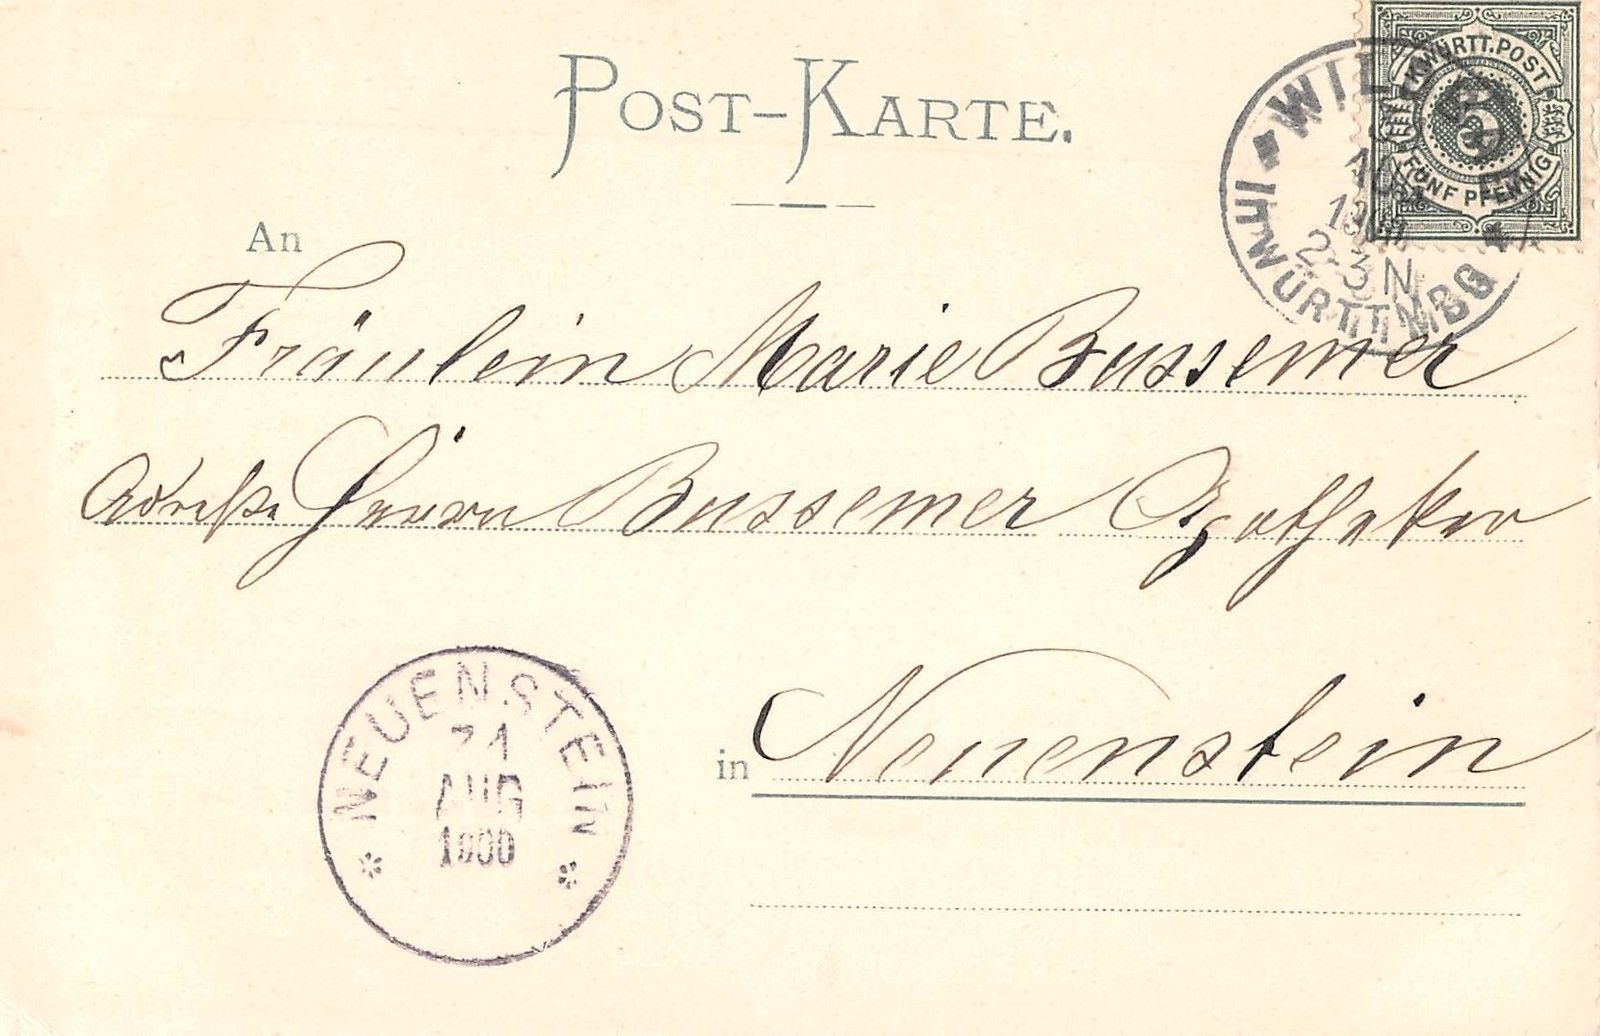 POST-KARTE.
K. WÜRTT. POST
5
FÜNF PFENNIG
AUG
2-3 N
IN WÜRTTMBG
An
Fräulein Marie Bussemer
Adreße Herrn Bussemer Apotheker
in Neuenstein
NEUENSTEIN
31
AUG
1900